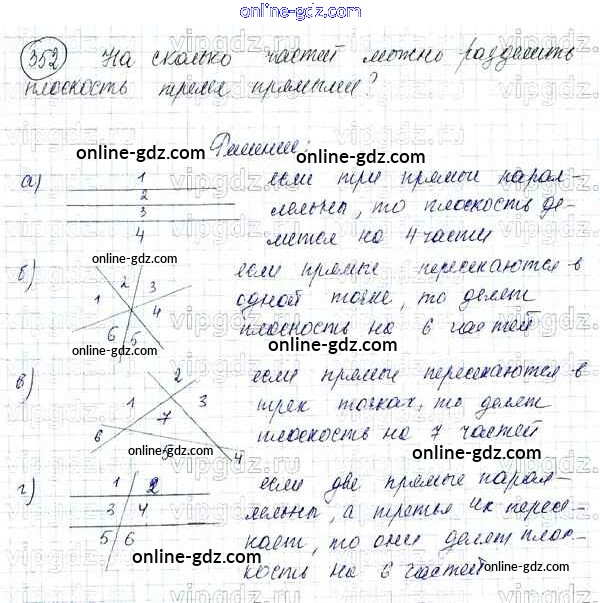 online-gdz.com
352 На сколько частей можно разделить
плоскость тремя прямыми?
Решение:
online-gdz.com
а) 1 2 3 4 если три прямые парал-
лельны, то плоскость де-
лится на 4 части
online-gdz.com
б) 1 2 3 4 5 6 если прямые пересекаются в
одной точке, то делят
плосность на 6 частей
online-gdz.com
в) 1 2 3 4 5 6 7 если прямые пересекаются в
трех точках, то делят
плоскость на 7 частей
online-gdz.com
г) 1 2 3 4 5 6 если две прямые парал-
лельны, а третья их пересе-
кает, то они делят плос-
кость на 6 частей
online-gdz.com
vipgdz.ru